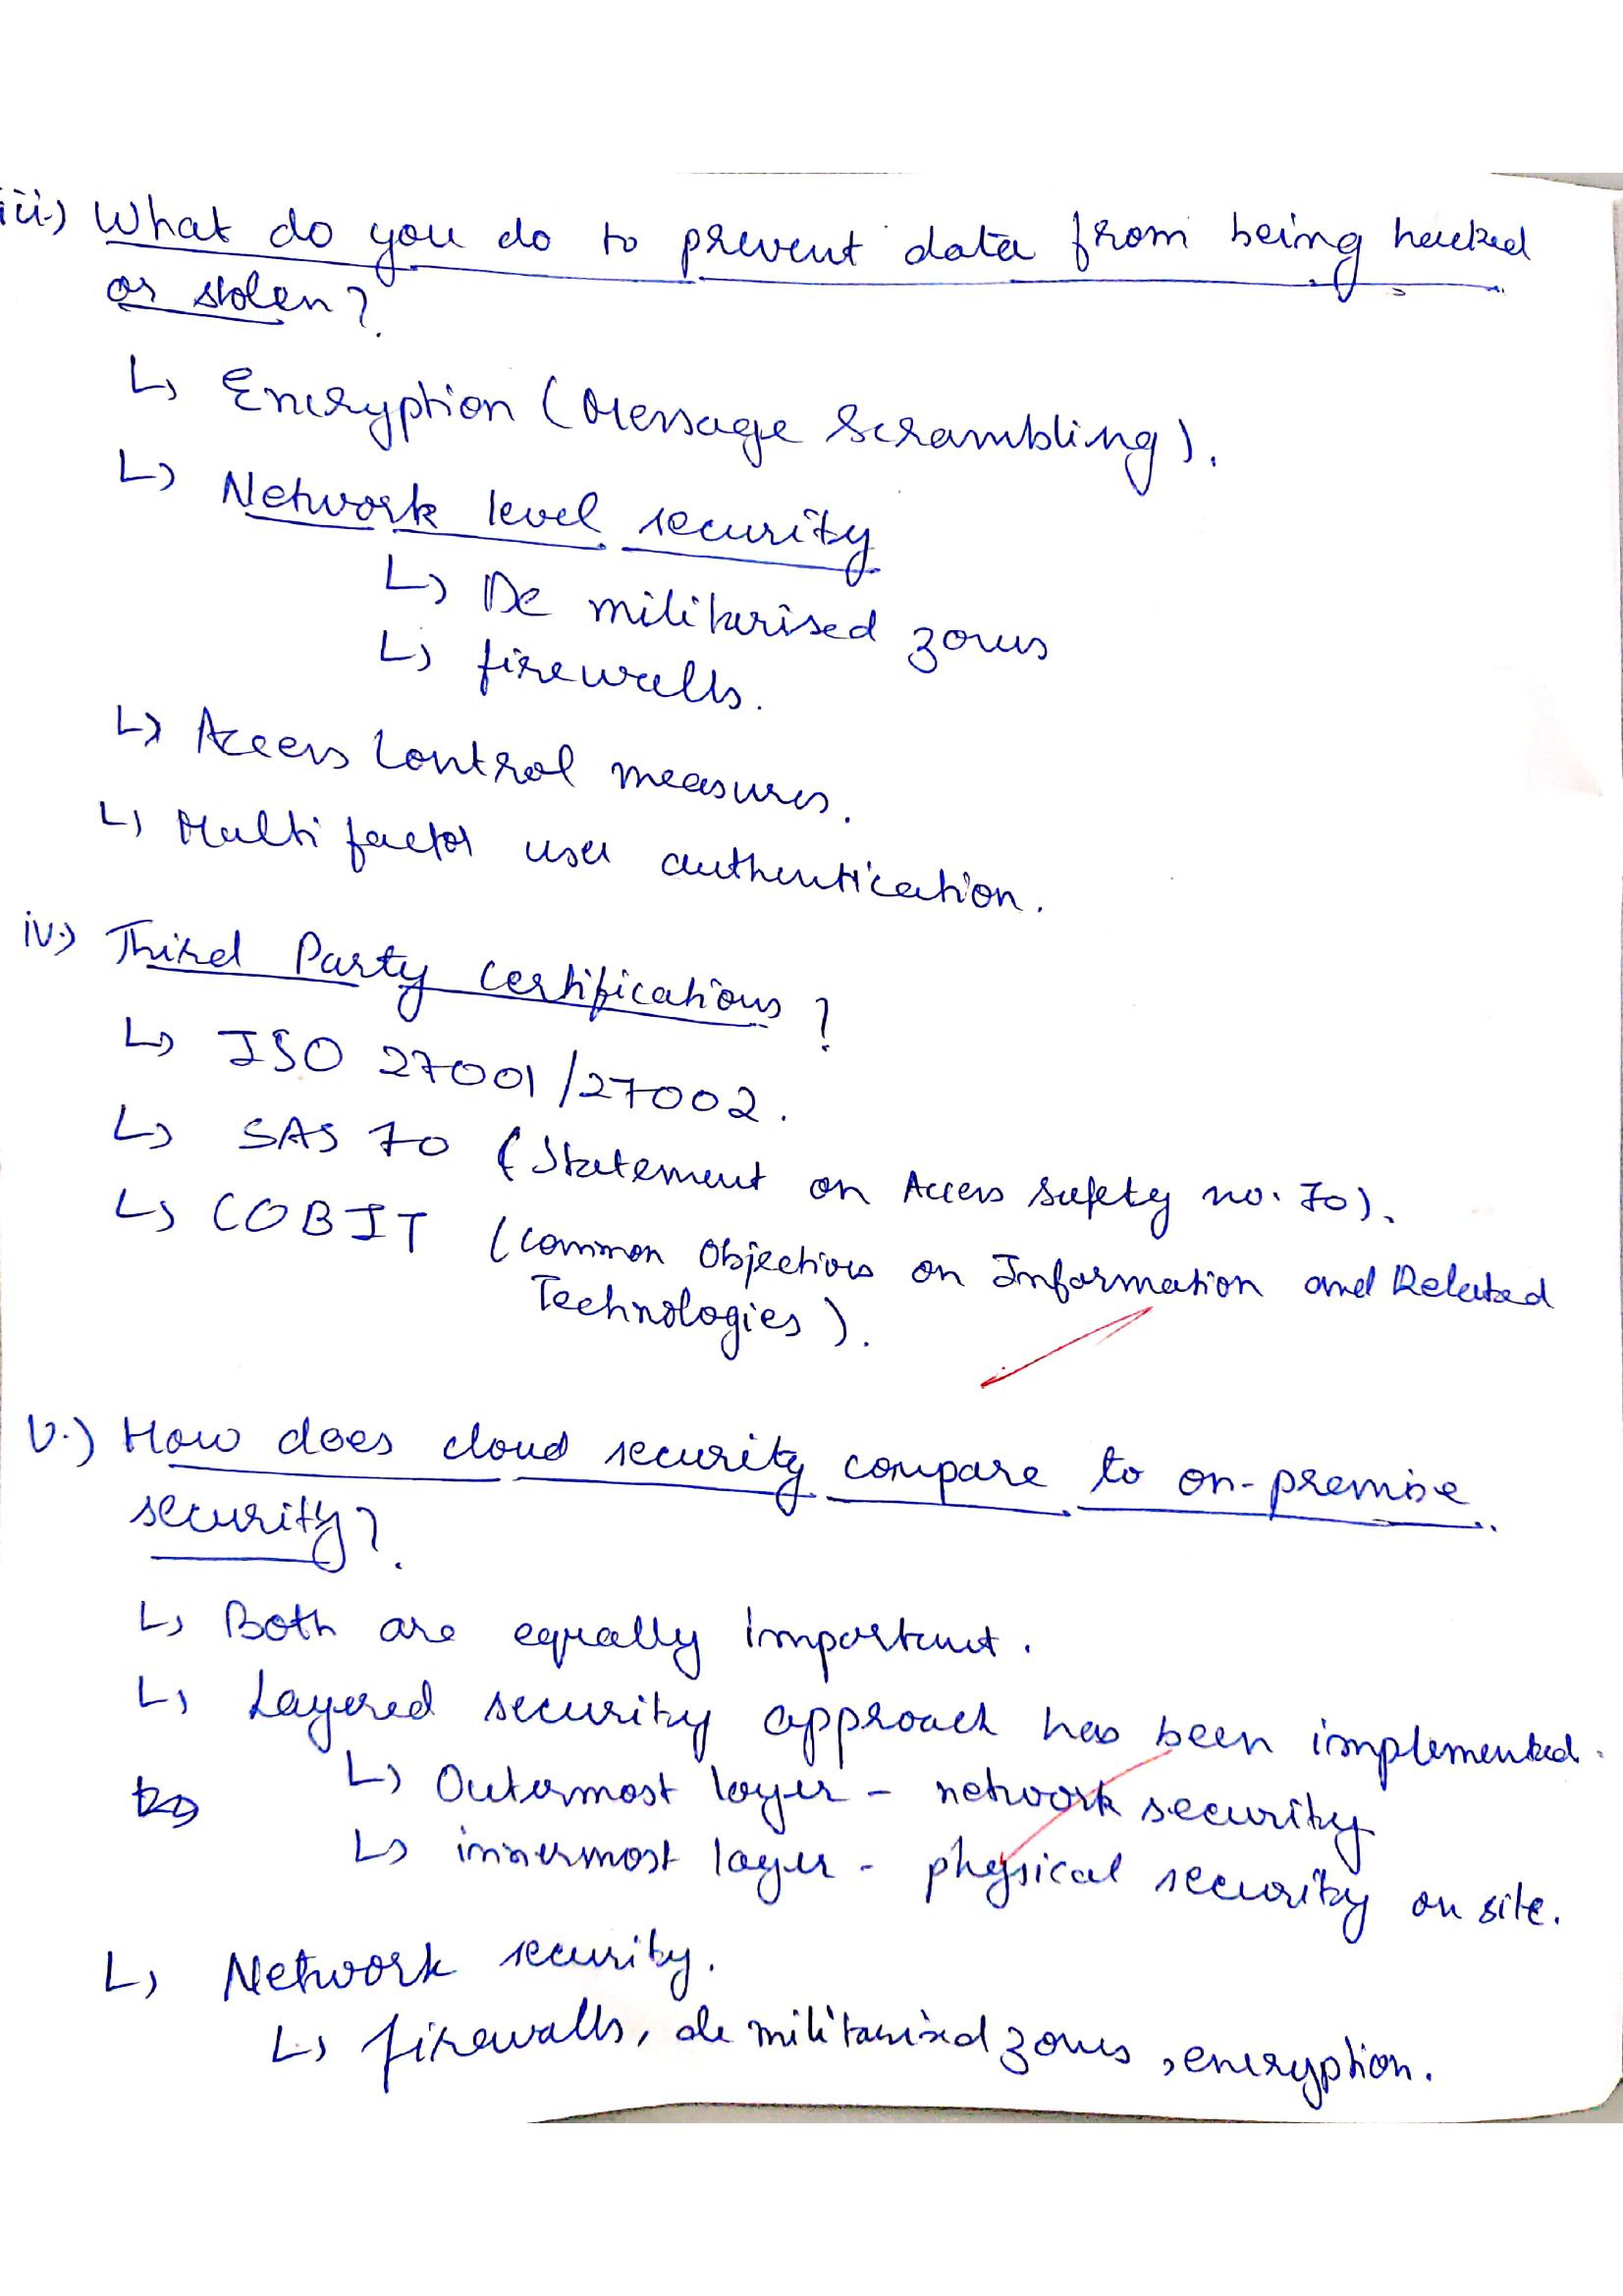 iii) What do you do to prevent data from being hacked
or stolen?
↳ Encryption (Message Scrambling).
↳ Network level security
↳ De militarised zones
↳ firewalls.
↳ Access Control measures.
↳ Multi factor user authentication.
iv.) Third Party Certifications?
↳ ISO 27001/27002.
↳ SAS 70 (Statement on Access Safety no. 70).
↳ COBIT (Common Objectives on Information and Related
Technologies).
v.) How does cloud security compare to on-premise
security?
↳ Both are equally important.
↳ Layered security approach has been implemented.
↳ Outermost layer - network security
↳ innermost layer - physical security on site.
↳ Network security.
↳ firewalls, de militarised zones, encryption.